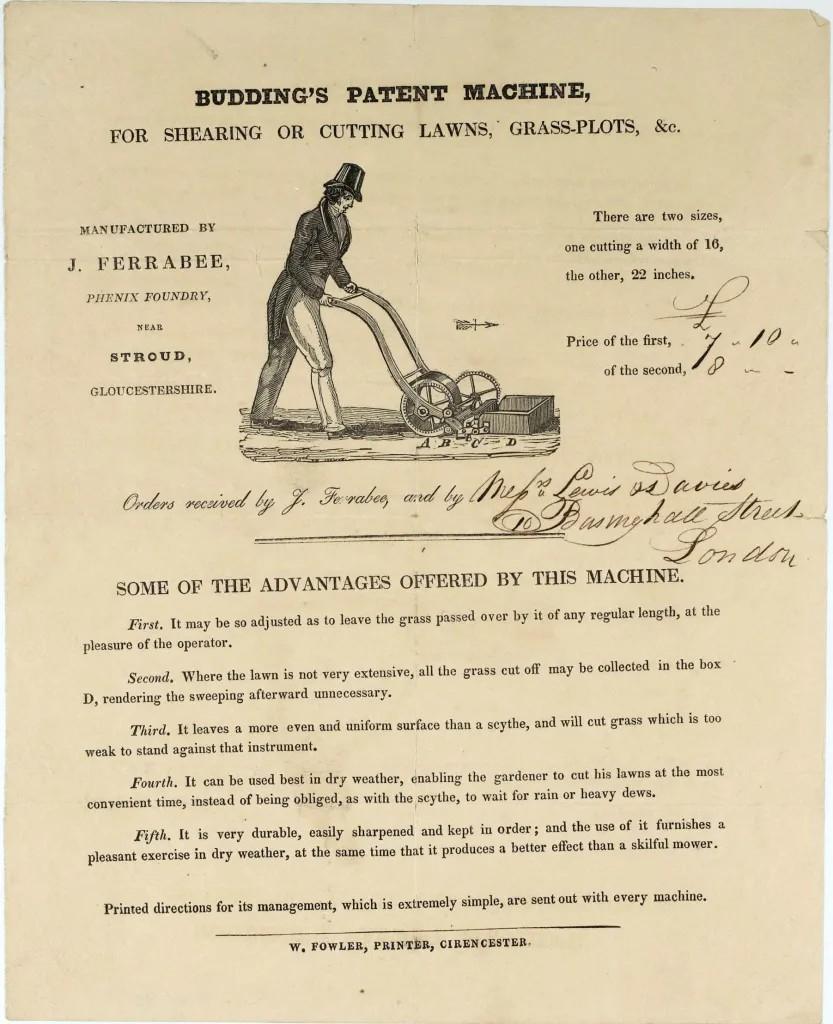 BUDDING'S PATENT MACHINE,
FOR SHEARING OR CUTTING LAWNS, GRASS-PLOTS, &c.
MANUFACTURED BY
J. FERRABEE,
PHENIX FOUNDRY,
NEAR
STROUD,
GLOUCESTERSHIRE.
There are two sizes,
one cutting a width of 16,
the other, 22 inches.
£
Price of the first, 7 " 10 "
of the second, 8 " "
A B C D
Orders received by J. Ferrabee, and by Messrs Lewis & Davies
10 Basinghall Street
London
SOME OF THE ADVANTAGES OFFERED BY THIS MACHINE.
First. It may be so adjusted as to leave the grass passed over by it of any regular length, at the
pleasure of the operator.
Second. Where the lawn is not very extensive, all the grass cut off may be collected in the box
D, rendering the sweeping afterward unnecessary.
Third. It leaves a more even and uniform surface than a scythe, and will cut grass which is too
weak to stand against that instrument.
Fourth. It can be used best in dry weather, enabling the gardener to cut his lawns at the most
convenient time, instead of being obliged, as with the scythe, to wait for rain or heavy dews.
Fifth. It is very durable, easily sharpened and kept in order; and the use of it furnishes a
pleasant exercise in dry weather, at the same time that it produces a better effect than a skilful mower.
Printed directions for its management, which is extremely simple, are sent out with every machine.
W. FOWLER, PRINTER, CIRENCESTER.